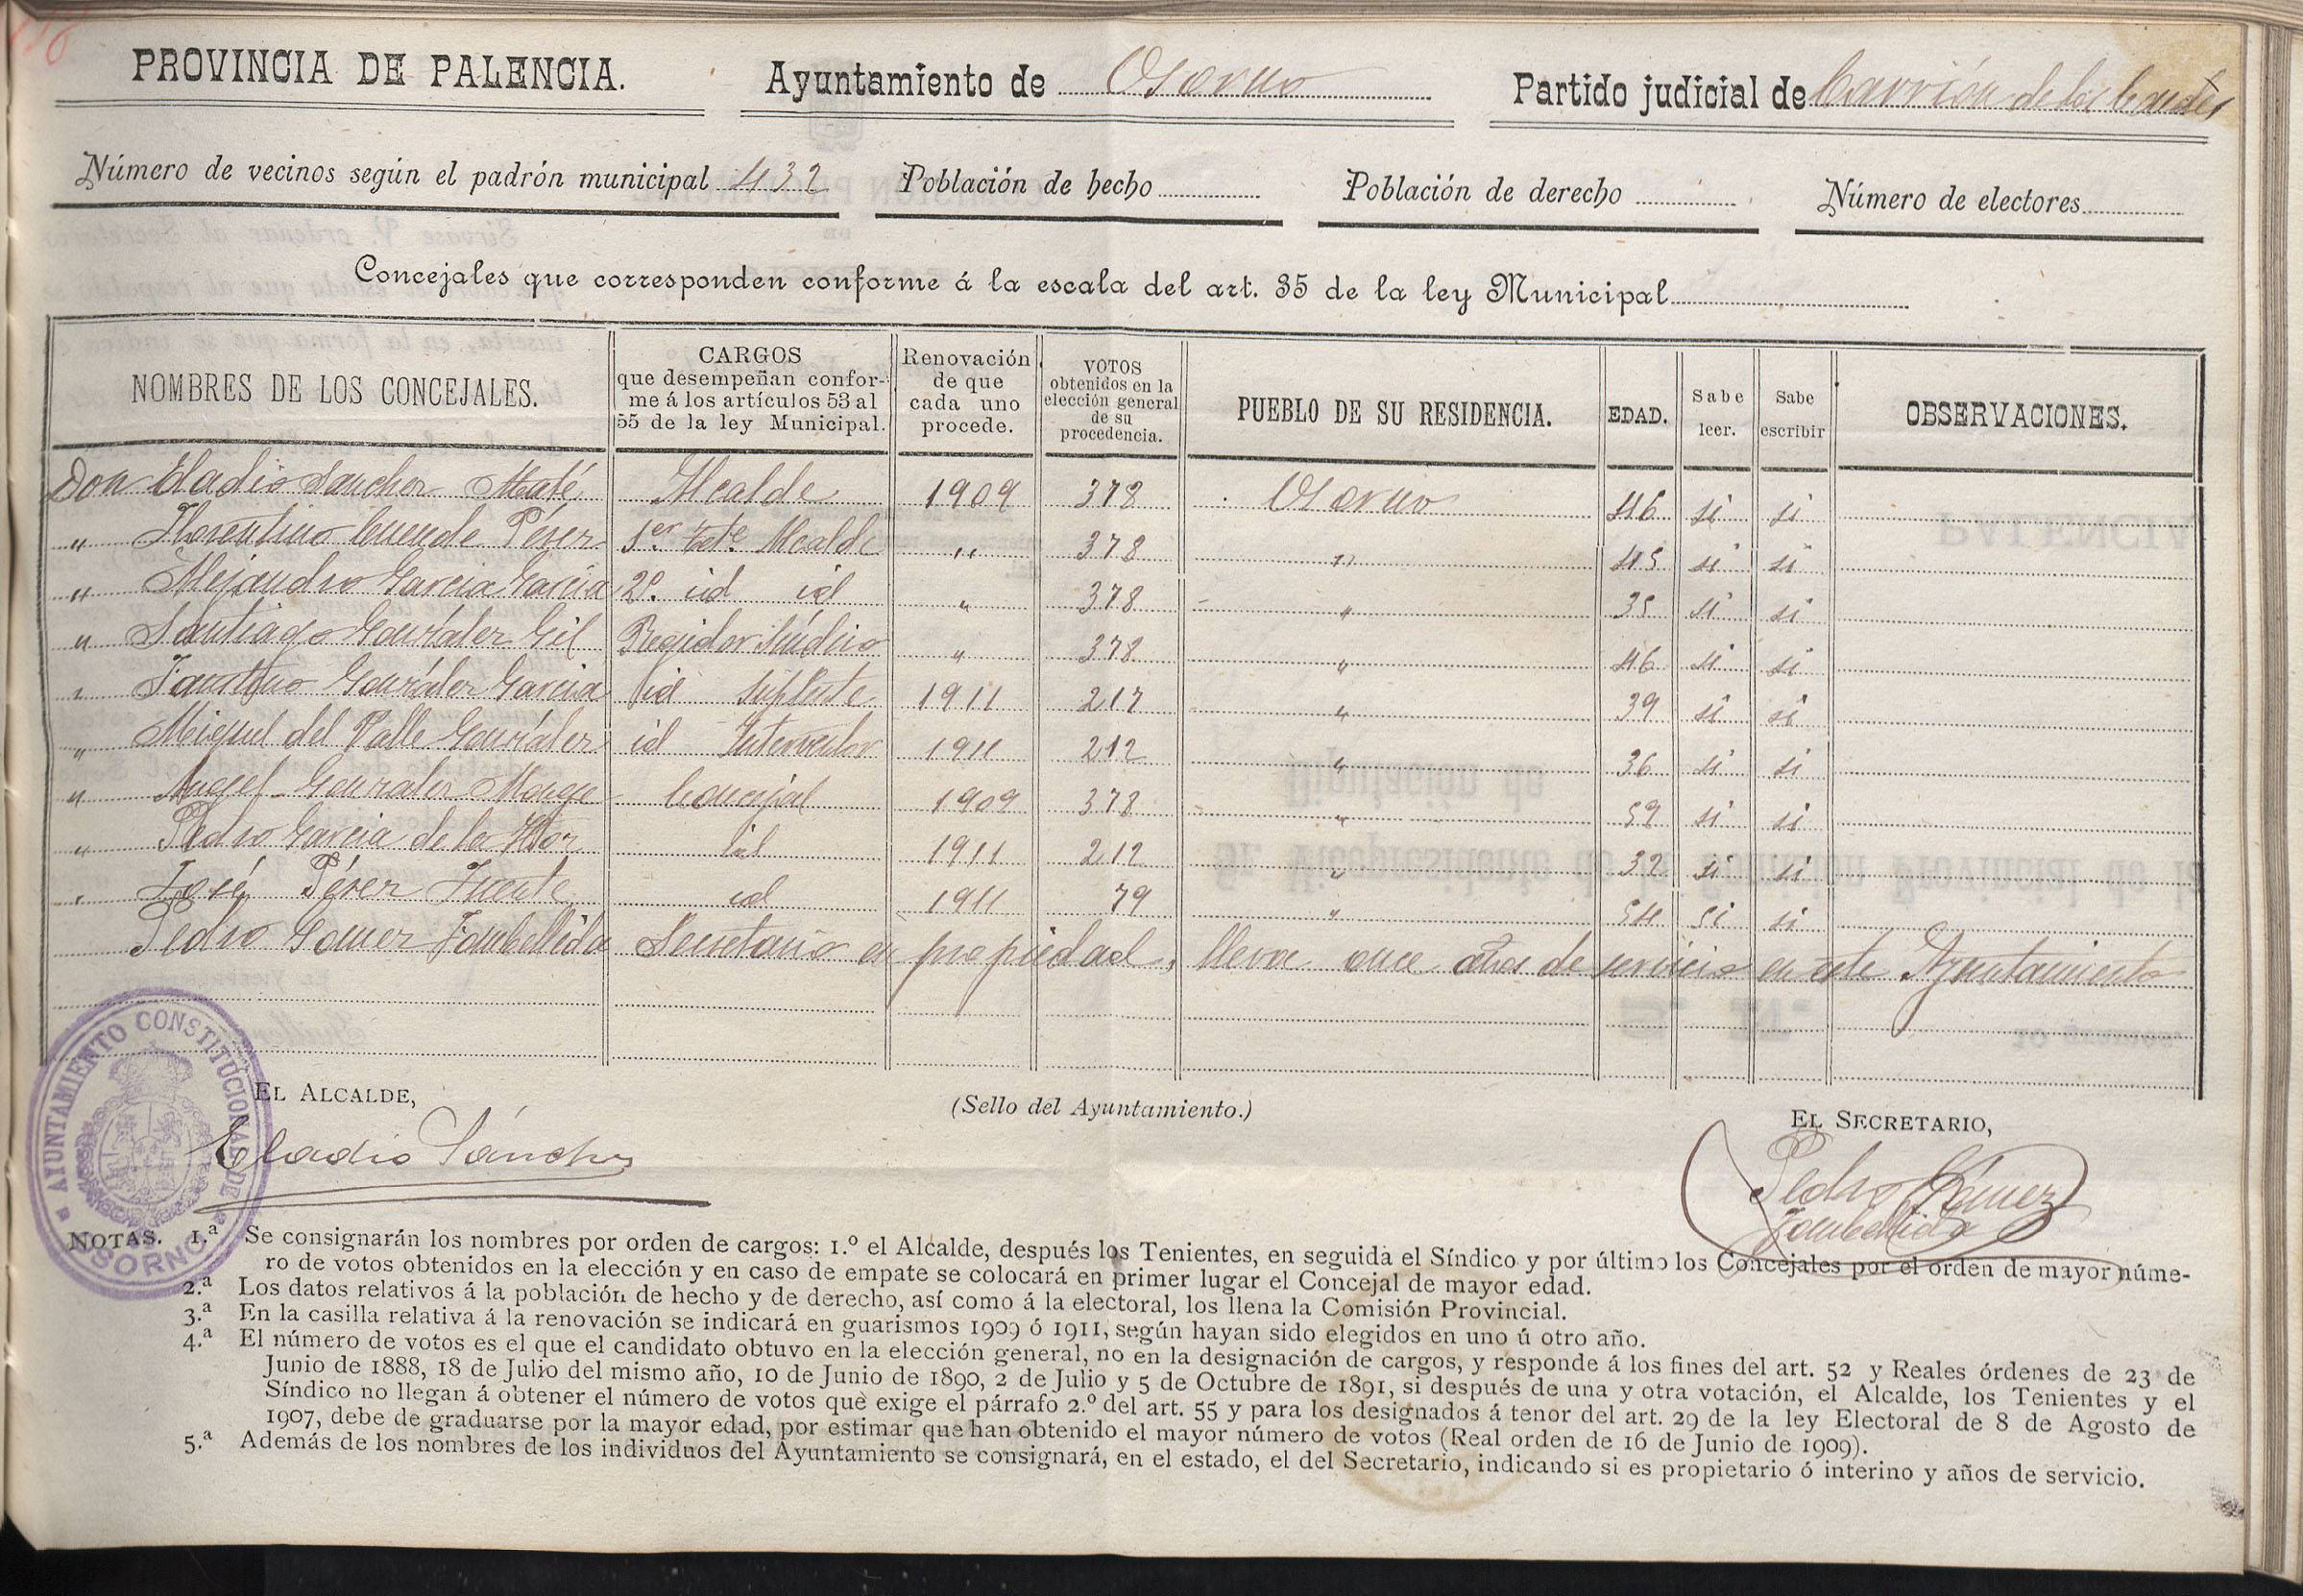 PROVINCIA DE PALENCIA. Ayuntamiento de Osorno Partido judicial de Carrión de los Condes
Número de vecinos según el padrón municipal 432 Población de hecho Población de derecho Número de electores
Concejales que corresponden conforme á la escala del art. 35 de la ley Municipal
NOMBRES DE LOS CONCEJALES. CARGOS que desempeñan conforme á los artículos 53 al 55 de la ley Municipal. Renovación de que cada uno procede. VOTOS obtenidos en la elección general de su procedencia. PUEBLO DE SU RESIDENCIA. EDAD. Sabe leer. Sabe escribir OBSERVACIONES.
Don Eladio Sanchez Maté Alcalde 1909 378 Osorno 46 si si
" Florentino Cuende Pérez 1er. tete. Alcalde " 378 " 45 si si
" Alejandro Garcia Garcia 2º. id id " 378 " 35 si si
" Santiago González Gil Regidor Síndico " 378 " 46 si si
" Faustino González Garcia id suplente 1911 217 " 39 si si
" Miguel del Valle González id Interventor 1911 212 " 36 si si
" Angel Gonzalez Monge Concejal 1909 378 " 59 si si
" Pedro Garcia de la Hoz id 1911 212 " 32 si si
" José Pérez Fuente id 1911 79 " 54 si si
Pedro Gomez Fombellida Secretario en propiedad, lleva once años de servicio en este Ayuntamiento
AYUNTAMIENTO CONSTITUCIONAL DE OSORNO
EL ALCALDE,
(Sello del Ayuntamiento.)
EL SECRETARIO,
Eladio Sánchez
Pedro Gómez
Fombellida
NOTAS. 1.ª Se consignarán los nombres por orden de cargos: 1.º el Alcalde, después los Tenientes, en seguida el Síndico y por último los Concejales por el orden de mayor núme-
ro de votos obtenidos en la elección y en caso de empate se colocará en primer lugar el Concejal de mayor edad.
2.ª Los datos relativos á la población de hecho y de derecho, así como á la electoral, los llena la Comisión Provincial.
3.ª En la casilla relativa á la renovación se indicará en guarismos 1909 ó 1911, según hayan sido elegidos en uno ú otro año.
4.ª El número de votos es el que el candidato obtuvo en la elección general, no en la designación de cargos, y responde á los fines del art. 52 y Reales órdenes de 23 de
Junio de 1888, 18 de Julio del mismo año, 10 de Junio de 1890, 2 de Julio y 5 de Octubre de 1891, si después de una y otra votación, el Alcalde, los Tenientes y el
Síndico no llegan á obtener el número de votos que exige el párrafo 2.º del art. 55 y para los designados á tenor del art. 29 de la ley Electoral de 8 de Agosto de
1907, debe de graduarse por la mayor edad, por estimar que han obtenido el mayor número de votos (Real orden de 16 de Junio de 1909).
5.ª Además de los nombres de los individuos del Ayuntamiento se consignará, en el estado, el del Secretario, indicando si es propietario ó interino y años de servicio.